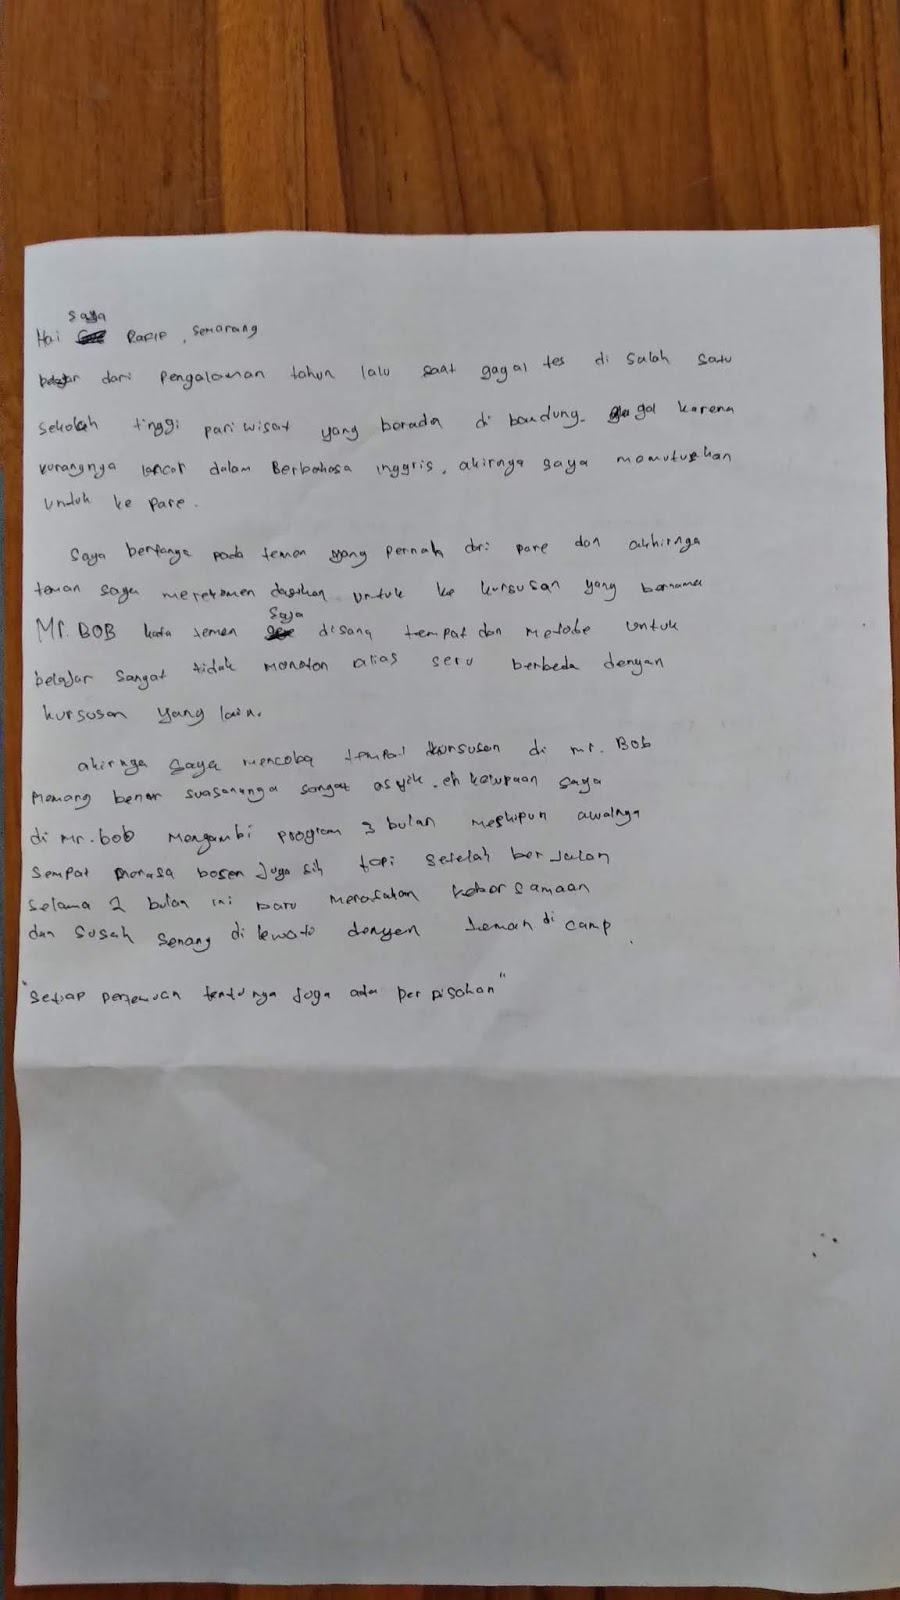 Hai saya Rafif, Semarang
belajar dari Pengalaman tahun lalu saat gagal tes di salah satu
sekolah tinggi pariwisat yang berada di bandung. gagal karena
kurangnya lancar dalam Berbahasa inggris, akirnya saya memutuskan
untuk ke Pare.
Saya bertanya pada teman yang Pernah dari pare dan akhirnya
teman saya merekomendasikan untuk ke kursusan yang bernama
Mr. BOB kata teman saya disana tempat dan metode untuk
belajar sangat tidak monoton alias seru berbeda dengan
kursusan yang lain.
akirnya saya mencoba tempat kursusan di mr. Bob
Memang benar suasananya sangat asyik. eh kelupaan saya
di Mr. bob Mengambi program 3 bulan meskipun awalnya
sempat merasa bosen juga sih tapi setelah berjalan
selama 2 bulan ini baru merasakan kebersamaan
dan susah senang di lewati dengen teman di camp.
"setiap pertemuan tentunya juga ada perpisahan"